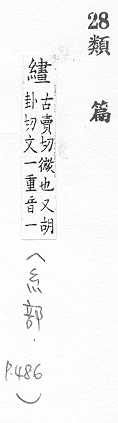 28類篇
繣
古賣切徽也又胡
卦切文一重音一
(糸部.
P.486)